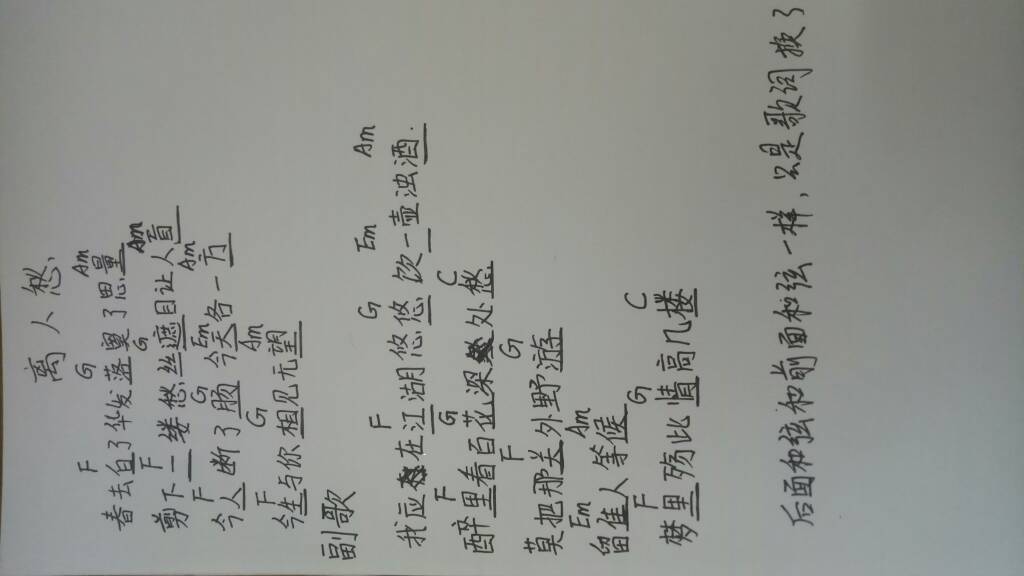 离人愁、
F G Am
春去白了华发落寞了思量
F G Am
剪下一缕愁丝遮目让人盲
F G Em Am
今人断了肠 今天各一方
F G Am
今生与你相见无望
副歌
F G Em Am
我应在江湖悠悠 饮一壶浊酒.
F G C
醉里看百花深处愁
F G
莫把那关外野游
Em Am
留隹人等候
F G C
梦里殇此情高几楼
后面和弦和前面和弦一样，只是歌词换了